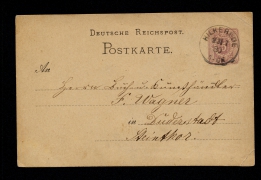 DEUTSCHE REICHSPOST.
POSTKARTE.
An
Herrn Buch- u. Kunsthändler
F. Wagner
in Duderstadt
Steinthor.